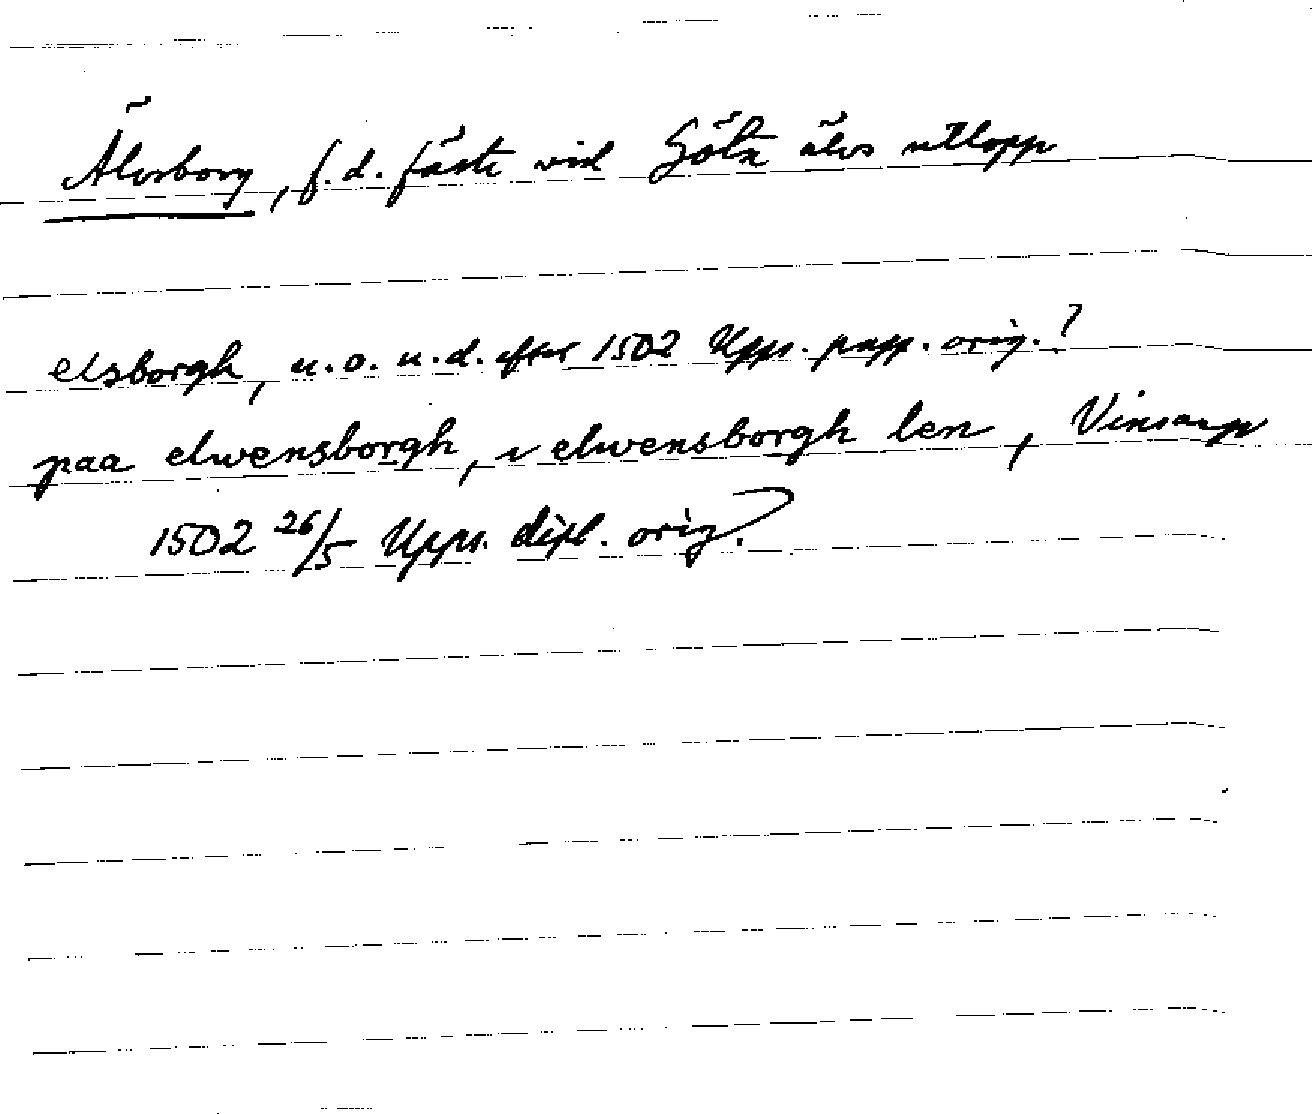 Älvsborg, f.d. fäste vid Göta älvs utlopp
elsborgh, u.o. u.d. efter 1502 Upps. papp. orig.?
paa elwensborgh, i elwensborgh len, Vinsarp
1502 26/5 Upps. dipl. orig?